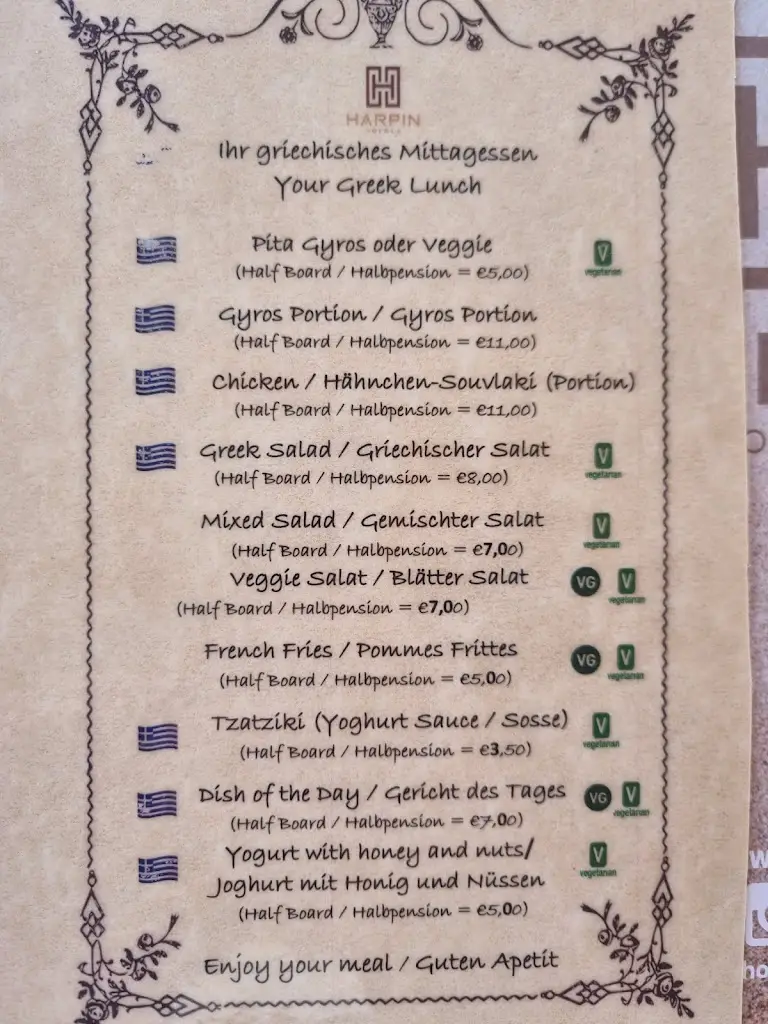 HARPIN
Ihr griechisches Mittagessen
Your Greek Lunch
Pita Gyros oder Veggie
V
vegetarian
(Half Board / Halbpension = €5,00)
Gyros Portion / Gyros Portion
(Half Board / Halbpension = €11,00)
Chicken / Hähnchen-Souvlaki (Portion)
(Half Board / Halbpension = €11,00)
Greek Salad / Griechischer Salat
V
vegetarian
(Half Board / Halbpension = €8,00)
Mixed Salad / Gemischter Salat
V
vegetarian
(Half Board / Halbpension = €7,00)
Veggie Salat / Blätter Salat
VG
V
vegetarian
(Half Board / Halbpension = €7,00)
French Fries / Pommes Frittes
VG
V
vegetarian
(Half Board / Halbpension = €5,00)
Tzatziki (Yoghurt Sauce / Sosse)
V
vegetarian
(Half Board / Halbpension = €3,50)
Dish of the Day / Gericht des Tages
VG
V
vegetarian
(Half Board / Halbpension = €7,00)
Yogurt with honey and nuts/
V
vegetarian
Joghurt mit Honig und Nüssen
(Half Board / Halbpension = €5,00)
Enjoy your meal / Guten Apetit